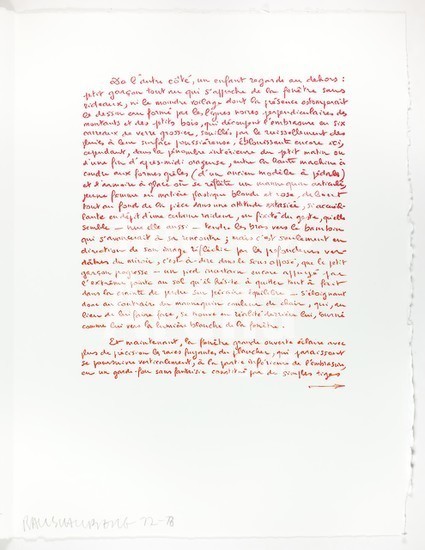 De l'autre côté, un enfant regarde au dehors :
petit garçon tout nu qui s'approche de la fenêtre sans
rideaux, ni le moindre voilage dont la présence estomperait
le dessin formé par les lignes noires perpendiculaires des
montants et des petits bois, qui découpent l'embrasure en six
carreaux de verre grossier, souillés par le ruissellement des
pluies à leur surface poussiéreuse, éblouissante encore ici
cependant, dans la pénombre intérieure du petit matin ou
d'une fin d'après-midi orageuse, entre la haute machine à
coudre aux formes grêles (d'un ancien modèle à pédale)
et l'armoire à glace où se reflète un mannequin articulé,
jeune femme en matière plastique blanche et rose, debout
tout au fond de la pièce dans une attitude extasiée, si accueil-
lante en dépit d'une certaine raideur, ou fixité du geste, qu'elle
semble — nue elle aussi — tendre les bras vers le bambin
qui s'avancerait à sa rencontre ; mais c'est seulement en
direction de son image réfléchie par les profondeurs ver-
dâtres du miroir, c'est-à-dire dans le sens opposé, que le petit
garçon progresse — un pied incertain encore appuyé par
l'extrême pointe au sol qu'il hésite à quitter tout à fait
dans la crainte de perdre son précaire équilibre — s'éloignant
donc au contraire du mannequin couleur de chair, qui, au
lieu de lui faire face, se trouve en réalité derrière lui, tourné
comme lui vers la lumière blanche de la fenêtre.
Et maintenant, la fenêtre grande ouverte éclaire avec
plus de précision les raies fuyantes du plancher, qui paraissent
se poursuivre verticalement, à la partie inférieure de l'embrasure,
en un garde-fou sans fantaisie constitué par de simples tiges
RAUSCHENBERG 22-78